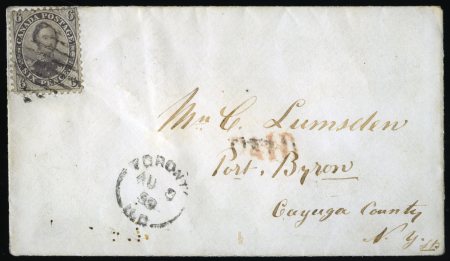 CANADA POSTAGE
SIX PENCE
Mr C. Lumsden
PAID
Port. Byron
Cayuga County
N. Y.
TORONTO
AU 5
59